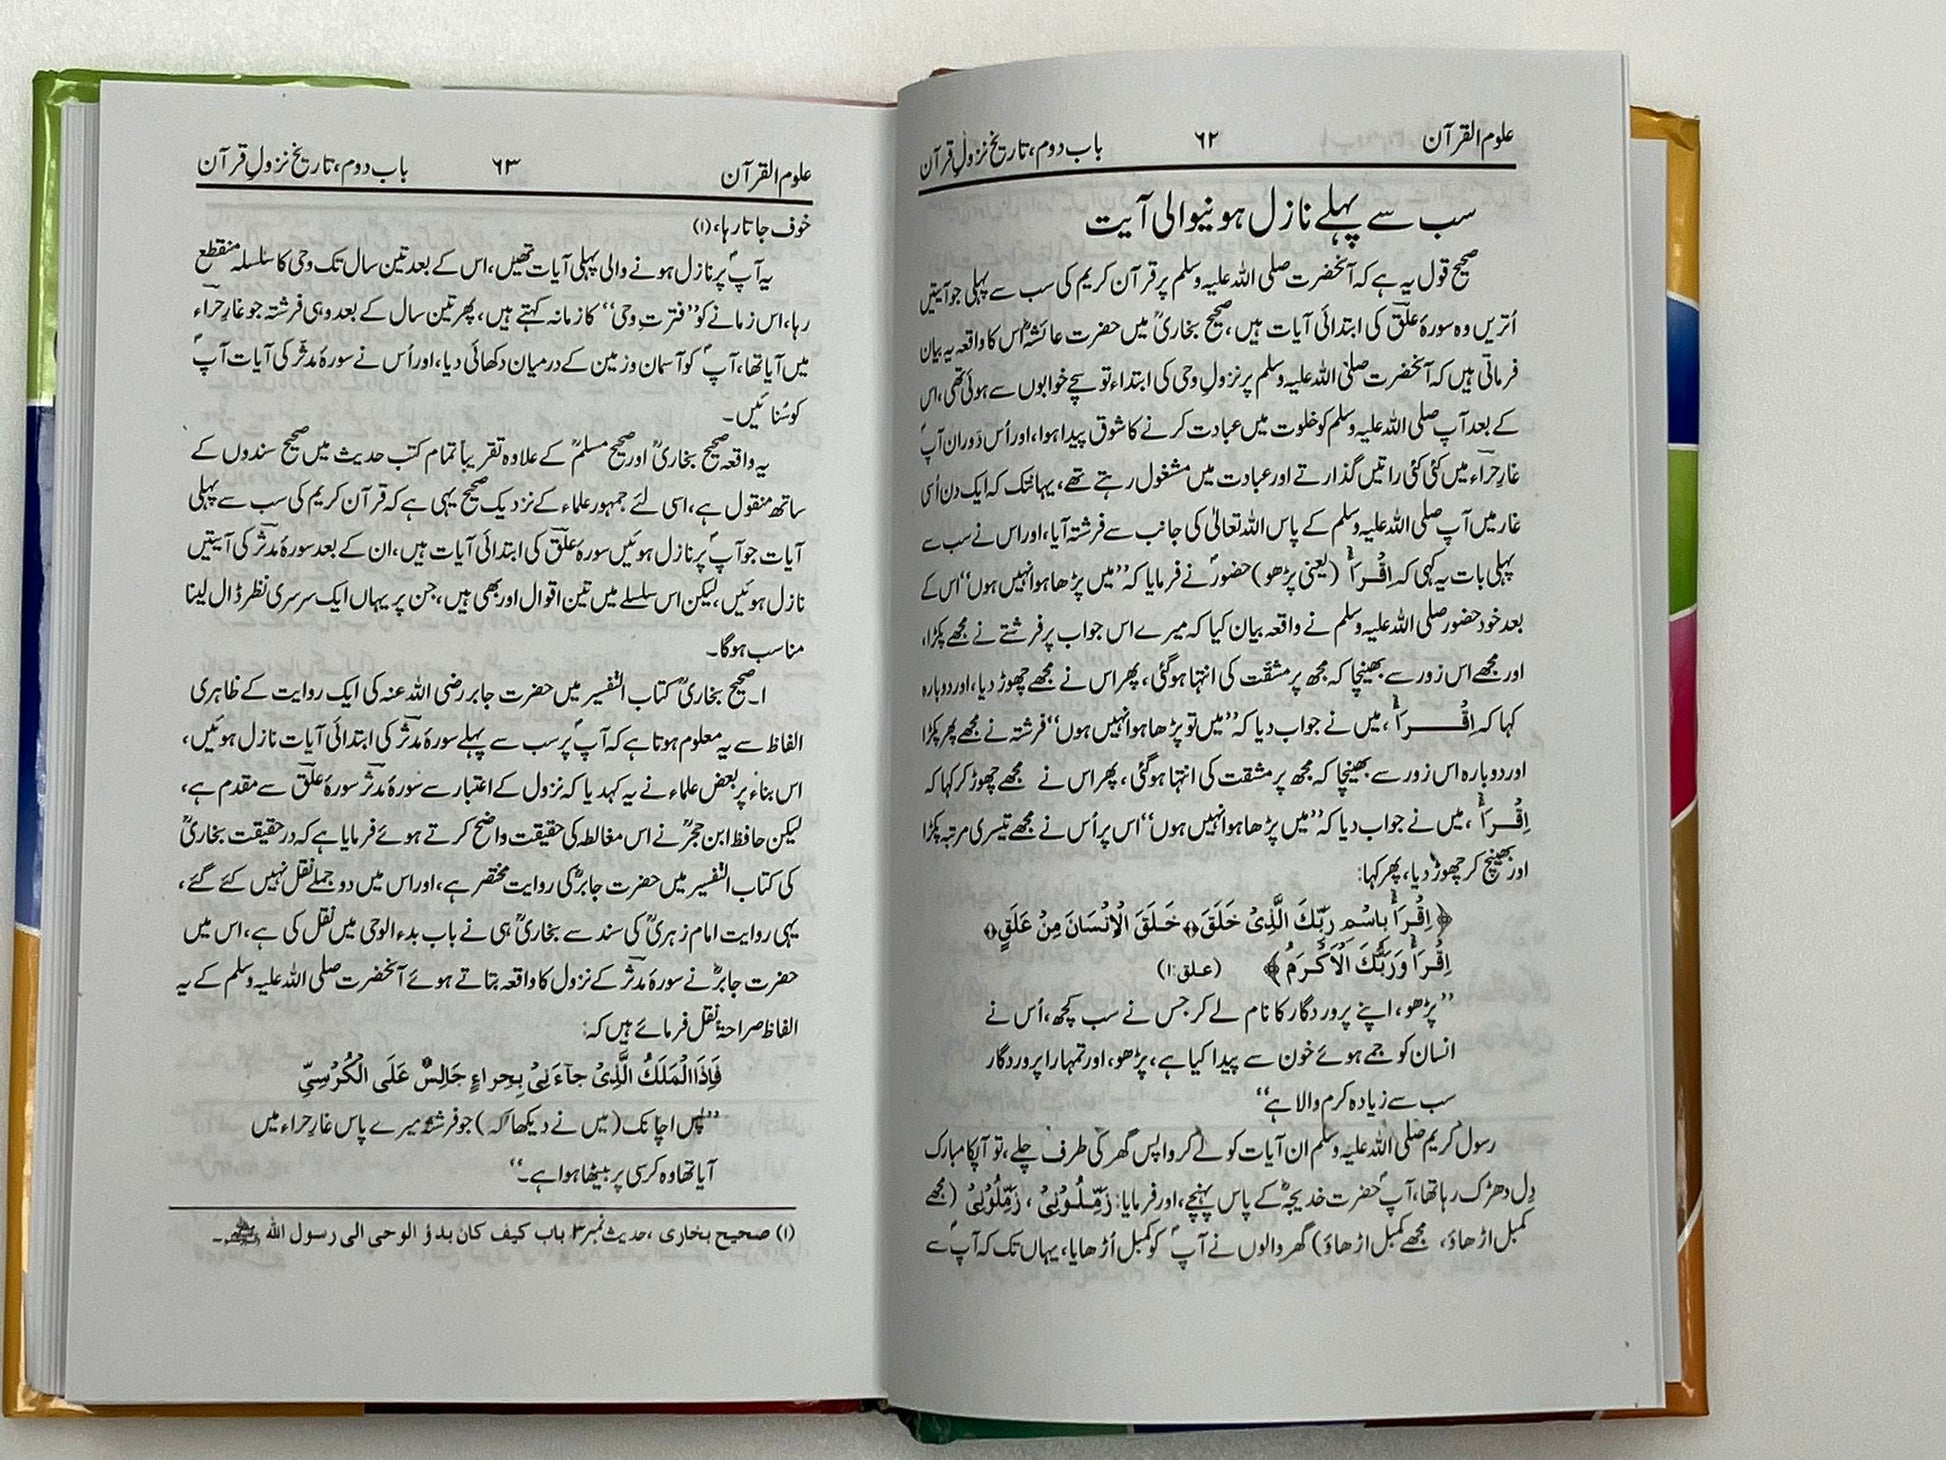 علوم القرآن ۶۲ باب دوم، تاریخ نزولِ قرآن
سب سے پہلے نازل ہونیوالی آیت
صحیح قول یہ ہے کہ آنحضرت صلی اللہ علیہ وسلم پر قرآن کریم کی سب سے پہلی جو آیتیں
اُتریں وہ سورۂ علق کی ابتدائی آیات ہیں، صحیح بخاریؒ میں حضرت عائشہؓ اس کا واقعہ یہ بیان
فرماتی ہیں کہ آنحضرت صلی اللہ علیہ وسلم پر نزولِ وحی کی ابتداء تو سچے خوابوں سے ہوئی تھی، اس
کے بعد آپ صلی اللہ علیہ وسلم کو خلوت میں عبادت کرنے کا شوق پیدا ہوا، اور اُس دَوران آپؐ
غارِ حراء میں کئی کئی راتیں گذارتے اور عبادت میں مشغول رہتے تھے، یہانتک کہ ایک دن اُسی
غار میں آپ صلی اللہ علیہ وسلم کے پاس اللہ تعالیٰ کی جانب سے فرشتہ آیا، اور اس نے سب سے
پہلی بات یہ کہی کہ اِقْرَأْ (یعنی پڑھو) حضورؐ نے فرمایا کہ ”میں پڑھا ہوا نہیں ہوں“ اس کے
بعد خود حضور صلی اللہ علیہ وسلم نے واقعہ بیان کیا کہ میرے اس جواب پر فرشتے نے مجھے پکڑا،
اور مجھے اس زور سے بھینچا کہ مجھ پر مشقّت کی انتہا ہوگئی، پھر اس نے مجھے چھوڑ دیا، اور دوبارہ
کہا کہ اِقْرَأْ، میں نے جواب دیا کہ ”میں تو پڑھا ہوا نہیں ہوں“ فرشتہ نے مجھے پھر پکڑا
اور دوبارہ اس زور سے بھینچا کہ مجھ پر مشقت کی انتہا ہوگئی، پھر اس نے مجھے چھوڑ کر کہا کہ
اِقْرَأْ، میں نے جواب دیا کہ ”میں پڑھا ہوا نہیں ہوں“ اس پر اُس نے مجھے تیسری مرتبہ پکڑا
اور بھینچ کر چھوڑ دیا، پھر کہا:
﴿اِقْرَأْ بِاسْمِ رَبِّكَ الَّذِیْ خَلَقَ﴾ خَلَقَ الْاِنْسَانَ مِنْ عَلَقٍ﴾
اِقْرَأْ وَرَبُّكَ الْاَكْرَمُ﴾ (علق:۱)
”پڑھو، اپنے پروردگار کا نام لے کر جس نے سب کچھ، اُس نے
انسان کو جمے ہوئے خون سے پیدا کیا ہے، پڑھو، اور تمہارا پروردگار
سب سے زیادہ کرم والا ہے“
رسول کریم صلی اللہ علیہ وسلم ان آیات کو لے کر واپس گھر کی طرف چلے، تو آپکا مبارک
دِل دھڑک رہا تھا، آپؐ حضرت خدیجہؓ کے پاس پہنچے، اور فرمایا: زَمِّلُوْنِیْ، زَمِّلُوْنِیْ (مجھے
کمبل اڑھاؤ، مجھے کمبل اڑھاؤ) گھر والوں نے آپؐ کو کمبل اُڑھایا، یہاں تک کہ آپؐ سے
علوم القرآن ۶۳ باب دوم، تاریخ نزولِ قرآن
خوف جاتا رہا، (۱)
یہ آپؐ پر نازل ہونے والی پہلی آیات تھیں، اس کے بعد تین سال تک وحی کا سلسلہ منقطع
رہا، اس زمانے کو ”فترتِ وحی“ کا زمانہ کہتے ہیں، پھر تین سال کے بعد وہی فرشتہ جو غارِ حراء
میں آیا تھا، آپؐ کو آسمان و زمین کے درمیان دکھائی دیا، اور اُس نے سورۂ مدثر کی آیات آپؐ
کو سُنائیں۔
یہ واقعہ صحیح بخاریؒ اور صحیح مسلمؒ کے علاوہ تقریباً تمام کتب حدیث میں صحیح سندوں کے
ساتھ منقول ہے، اسی لئے جمہور علماء کے نزدیک صحیح یہی ہے کہ قرآن کریم کی سب سے پہلی
آیات جو آپؐ پر نازل ہوئیں سورۂ علق کی ابتدائی آیات ہیں، ان کے بعد سورۂ مدثر کی آیتیں
نازل ہوئیں، لیکن اس سلسلے میں تین اقوال اور بھی ہیں، جن پر یہاں ایک سرسری نظر ڈال لینا
مناسب ہوگا۔
۱۔ صحیح بخاریؒ کتاب التفسیر میں حضرت جابر رضی اللہ عنہ کی ایک روایت کے ظاہری
الفاظ سے یہ معلوم ہوتا ہے کہ آپؐ پر سب سے پہلے سورۂ مدثر کی ابتدائی آیات نازل ہوئیں،
اس بناء پر بعض علماء نے یہ کہدیا کہ نزول کے اعتبار سے سورۂ مدثر سورۂ علق سے مقدم ہے،
لیکن حافظ ابن حجرؒ نے اس مغالطہ کی حقیقت واضح کرتے ہوئے فرمایا ہے کہ در حقیقت بخاریؒ
کی کتاب التفسیر میں حضرت جابرؓ کی روایت مختصر ہے، اور اس میں دو جملے نقل نہیں کئے گئے،
یہی روایت امام زہریؒ کی سند سے بخاریؒ ہی نے باب بدء الوحی میں نقل کی ہے، اس میں
حضرت جابرؓ نے سورۂ مدثر کے نزول کا واقعہ بتاتے ہوئے آنحضرت صلی اللہ علیہ وسلم کے یہ
الفاظ صراحۃً نقل فرمائے ہیں کہ:
فَاِذَا الْمَلَكُ الَّذِیْ جآءَ نِیْ بِحِراءٍ جَالِسٌ عَلَی الْکُرْسِیِّ
”پس اچانک (میں نے دیکھا کہ) جو فرشتہ میرے پاس غارِ حراء میں
آیا تھا وہ کرسی پر بیٹھا ہوا ہے۔“
(۱) صحیح بخاری، حدیث نمبر ۳ باب کیف کان بدؤ الوحی الی رسول اللہ ﷺ۔